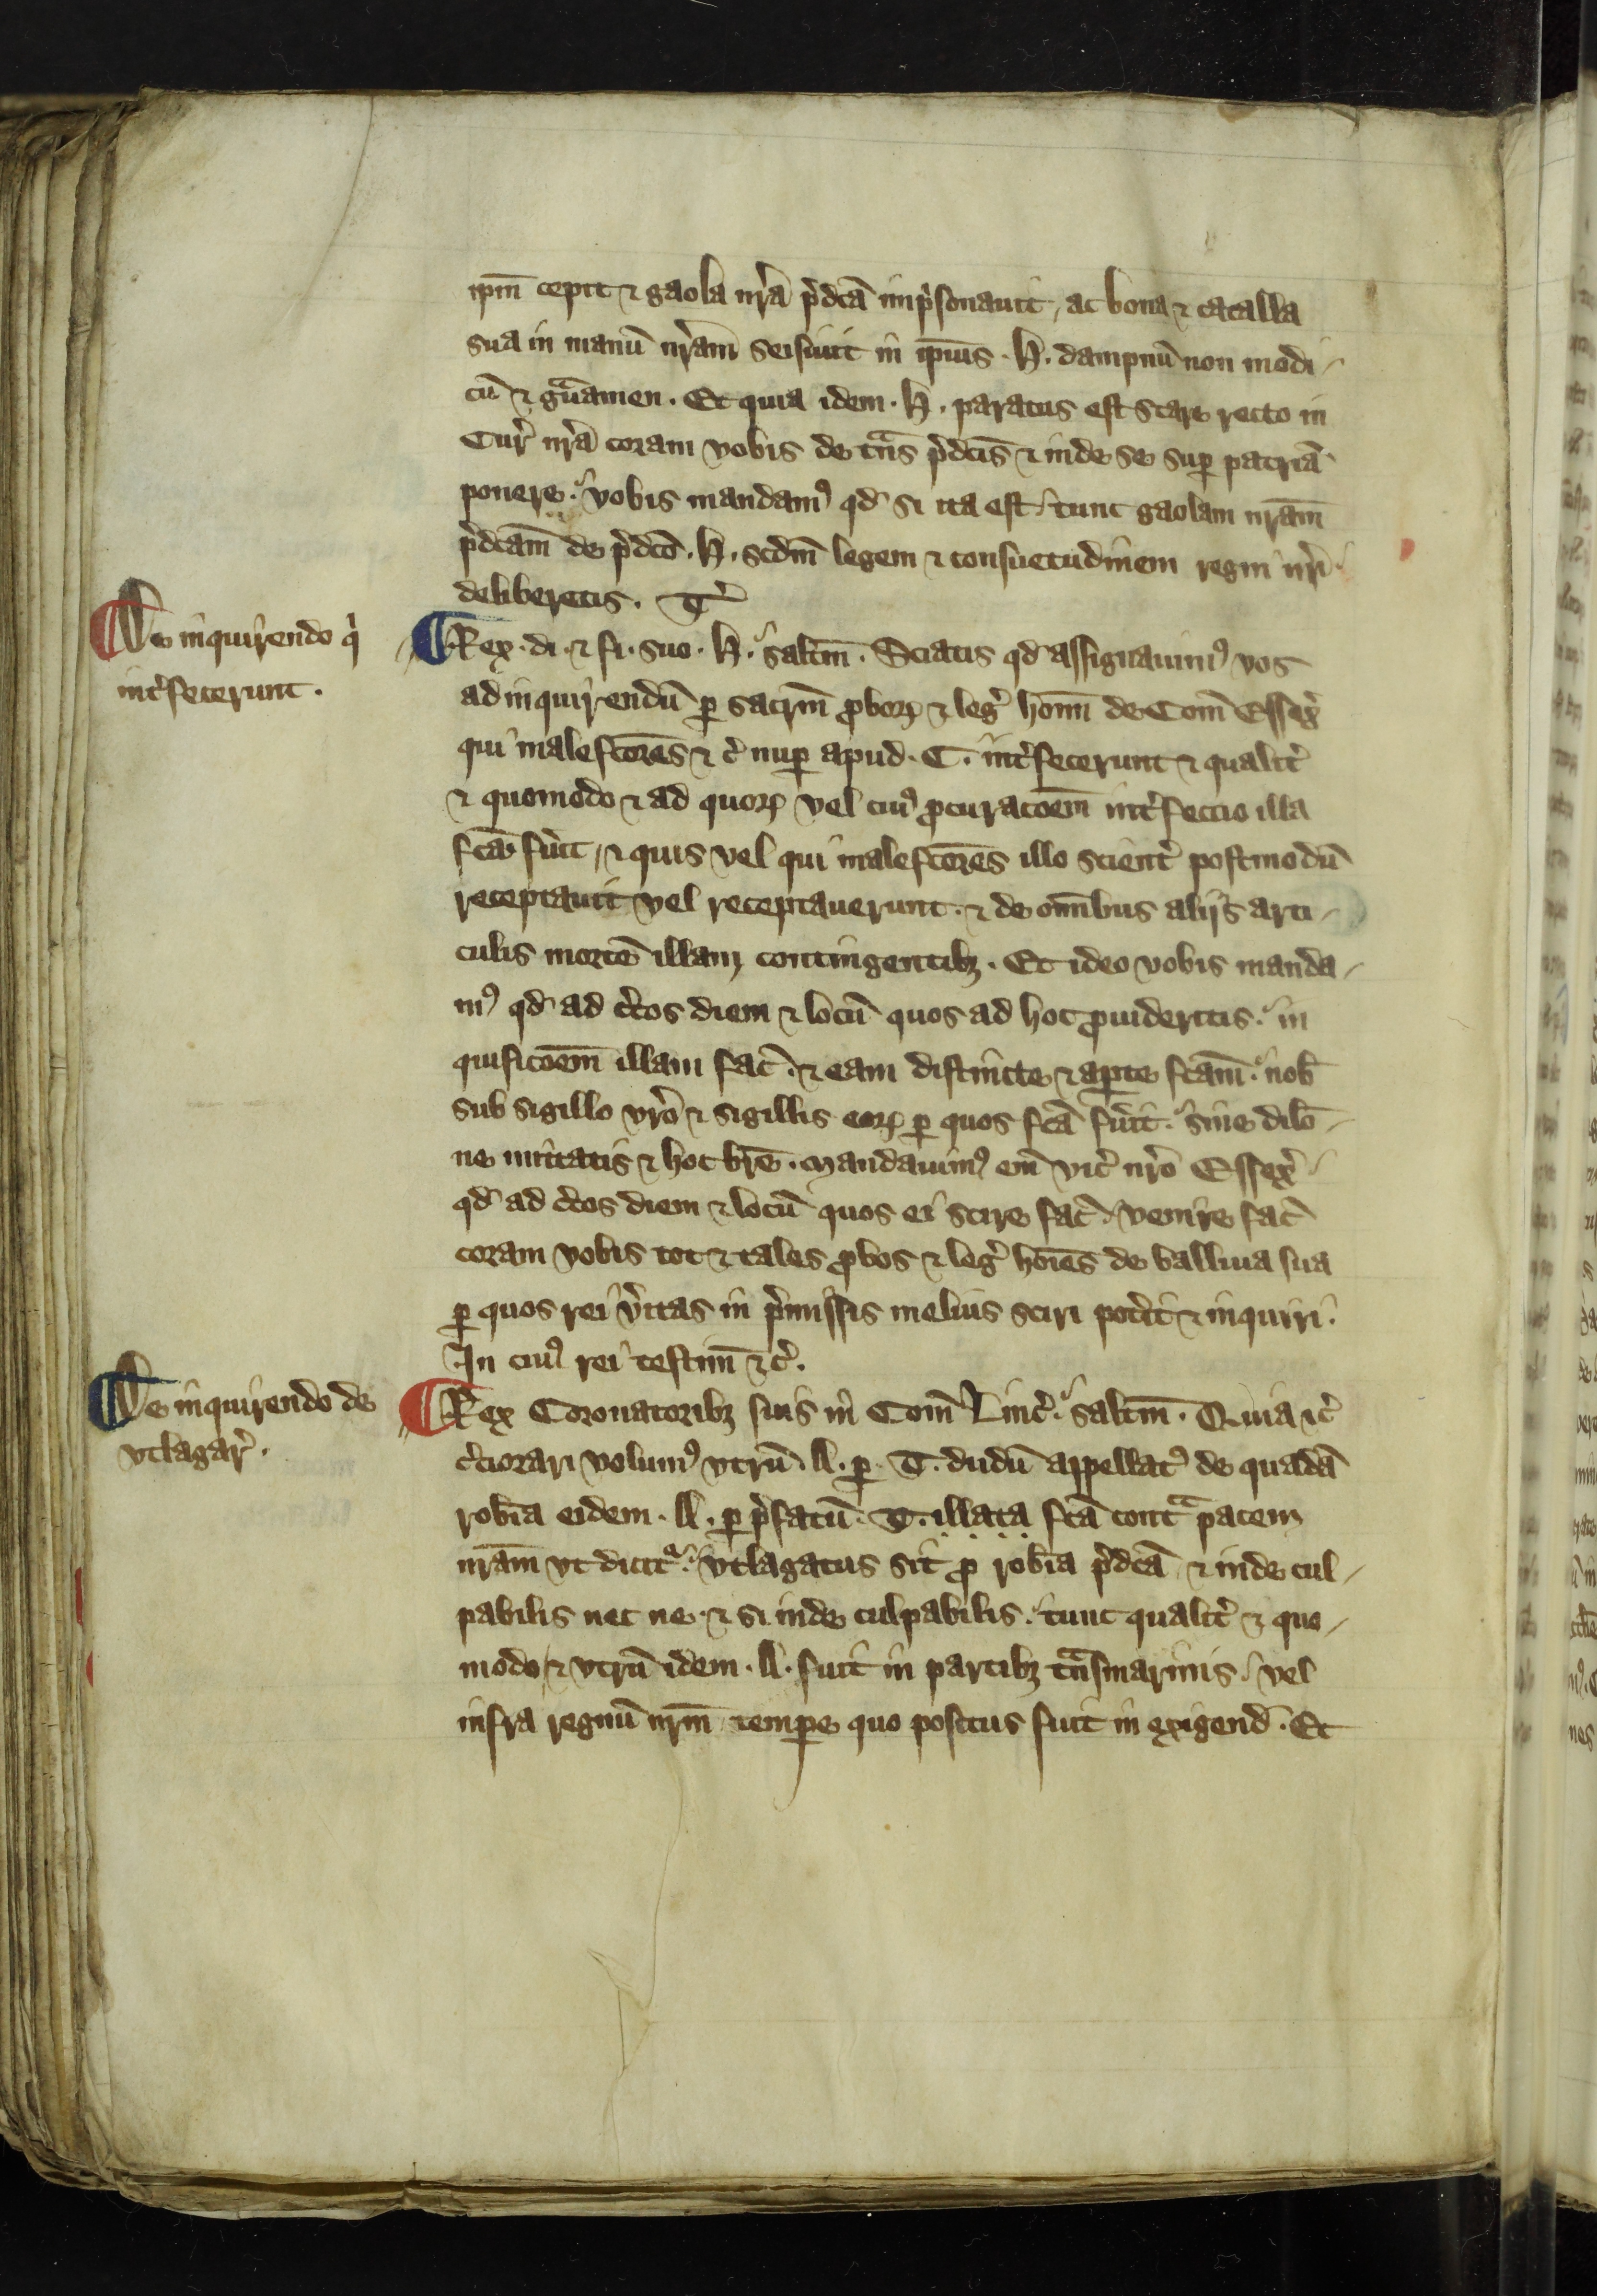 ip̄m cepit ⁊ gaola nr̄a p̄dc̄a imp̄sonauit, ac bona ⁊ catalla
sua in manū nr̄am seisiuit in ip̄ius . H . dampnū non modi-
cū ⁊ gͣuamen . Et quia idem . H . paratus est stare recto in
Cur̄ nr̄a coram vobis de tn̄s p̄dc̄is ⁊ inde se suꝑ patriā
ponere . vobis mandamꝰ qd̄ si ita est tunc gaolam nr̄am
p̄dc̄am de p̄dc̄o . H . scdm̄ legem ⁊ consuetudinem regni nr̄i
deliberetis . T̄
De inquirendo q̄
int̄fecerunt .
Rex . di . ⁊ fi . suo . H . salt̄m . Sciatis qd̄ assignauimꝰ vos
ad inquirendū ꝑ sacr̄m ꝓboꝝ ⁊ leḡ hom̄ de Com̄ Essex̄
qui malefc̄ores ⁊ c̄ nuꝑ apud . C . int̄fecerunt ⁊ qualit̄
⁊ quomodo ⁊ ad quoꝝ vel cuiꝰ ꝓcuracōem int̄feccio illa
fc̄a fūit, ⁊ quis vel qui malefc̄ores illo scient̄ postmodū
receptauit vel receptauerunt . ⁊ de om̄ibus alijs arti-
culis mortē illam contingentibꝫ . Et ideo vobis manda-
mꝰ qd̄ ad c̄tos diem ⁊ locū quos ad hoc ꝓuideritis . in
quisicōem illam fac̄ . ⁊ eam distincte ⁊ aꝑte fc̄am . nob̄
sub sigillo vr̄o ⁊ sigillis eoꝝ ꝑ quos fc̄a fūit . sine dilō-
ne mittatis ⁊ hoc br̄e . Mandauimꝰ em̄ vic̄ nr̄o Essex̄
qd̄ ad c̄tos diem ⁊ locū quos ei scire fac̄ . venire fac̄
coram vobis tot ⁊ tales ꝓbos ⁊ leḡ hoīes de balliua sua
ꝑ quos rei v̄itas in p̄missis melius sciri pot̄it ⁊ inquiri .
In cuiꝰ rei testim̄ ⁊ c̄ .
De inquirendo de
vtlagar̄ .
Rex Coronatoribꝫ suis in Com̄ Linc̄ . salt̄m . Quia ⁊c̄
c̄ciorari volumꝰ vtrū . A . ꝑ . T . dudū appellatꝰ de quadā
rob̄ia eidem . A . ꝑ p̄fatū . T . illata fc̄a contͣ pacem
nr̄am vt dicitͬ . vtlagatus sit ꝓ rob̄ia p̄dc̄a ⁊ inde cul-
pabilis nec ne . ⁊ si inde culpabilis . tunc qualit̄ ⁊ quo-
modo, ⁊ vtrū idem . A . fuit in partibꝫ tͣnsmarinis . vel
infra regnū nr̄m temꝑe quo positus fuit in exigend̄ . Et